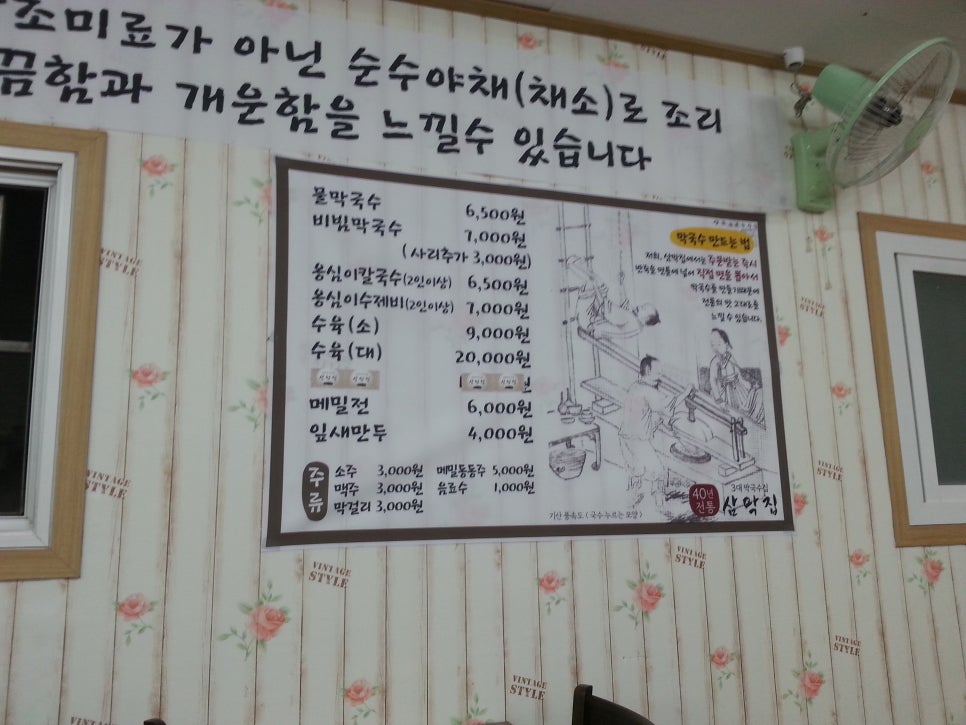 조미료가 아닌 순수야채(채소)로 조리
끔함과 개운함을 느낄수 있습니다
물막국수 6,500원
비빔막국수 7,000원
(사리추가 3,000원)
옹심이칼국수(2인이상) 6,500원
옹심이수제비(2인이상) 7,000원
수육(소) 9,000원
수육(대) 20,000원
메밀전 6,000원
잎새만두 4,000원
주류
소주 3,000원 메밀동동주 5,000원
맥주 3,000원 음료수 1,000원
막걸리 3,000원
막국수 만드는 법
저희, 삼막집에서는 주문받는 즉시
반죽을 면통에 넣어 직접 면을 뽑아서
막국수를 만들기때문에
전통의 맛 그대로를
느낄 수 있습니다.
기산 풍속도 (국수 누르는 모양)
40년 전통
3대 막국수집
삼막집
VINTAGE STYLE
VINTAGE STYLE
VINTAGE STYLE
VINTAGE STYLE
VINTAGE STYLE
VINTAGE STYLE
VINTAGE STYLE
VINTAGE STYLE
VINTAGE